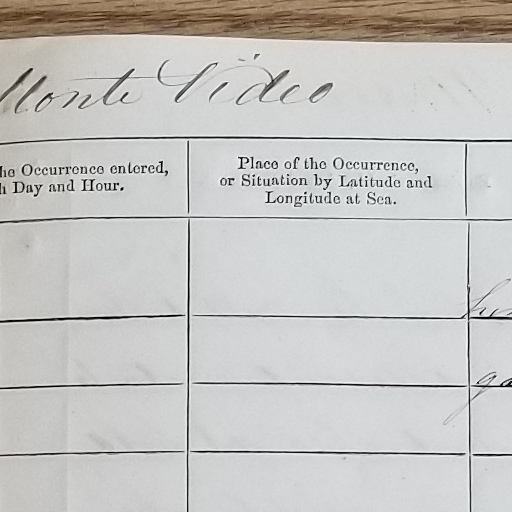 Monte Video
he Occurrence entered,
h Day and Hour.
Place of the Occurrence,
or Situation by Latitude and
Longitude at Sea.